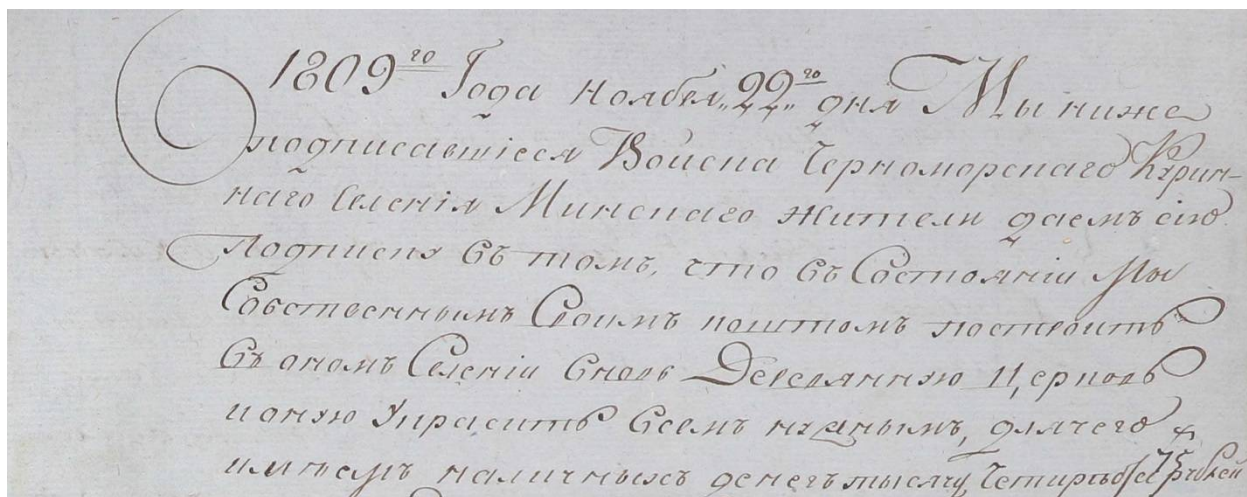 1809го Года ноября 22го дня Мы ниже
подписавшіеся Войска Черноморскаго Курин-
наго Селенія Минскаго жители даемъ сію
Подписку въ томъ, что въ Состояніи Мы
Собственнымъ Своимъ коштомъ построить
въ ономъ Селеніи вновь Деревянную Церковь
и оную Украсить всемъ нужнымъ, для чего
имѣемъ наличныхъ денегъ тысячу 75 рублей